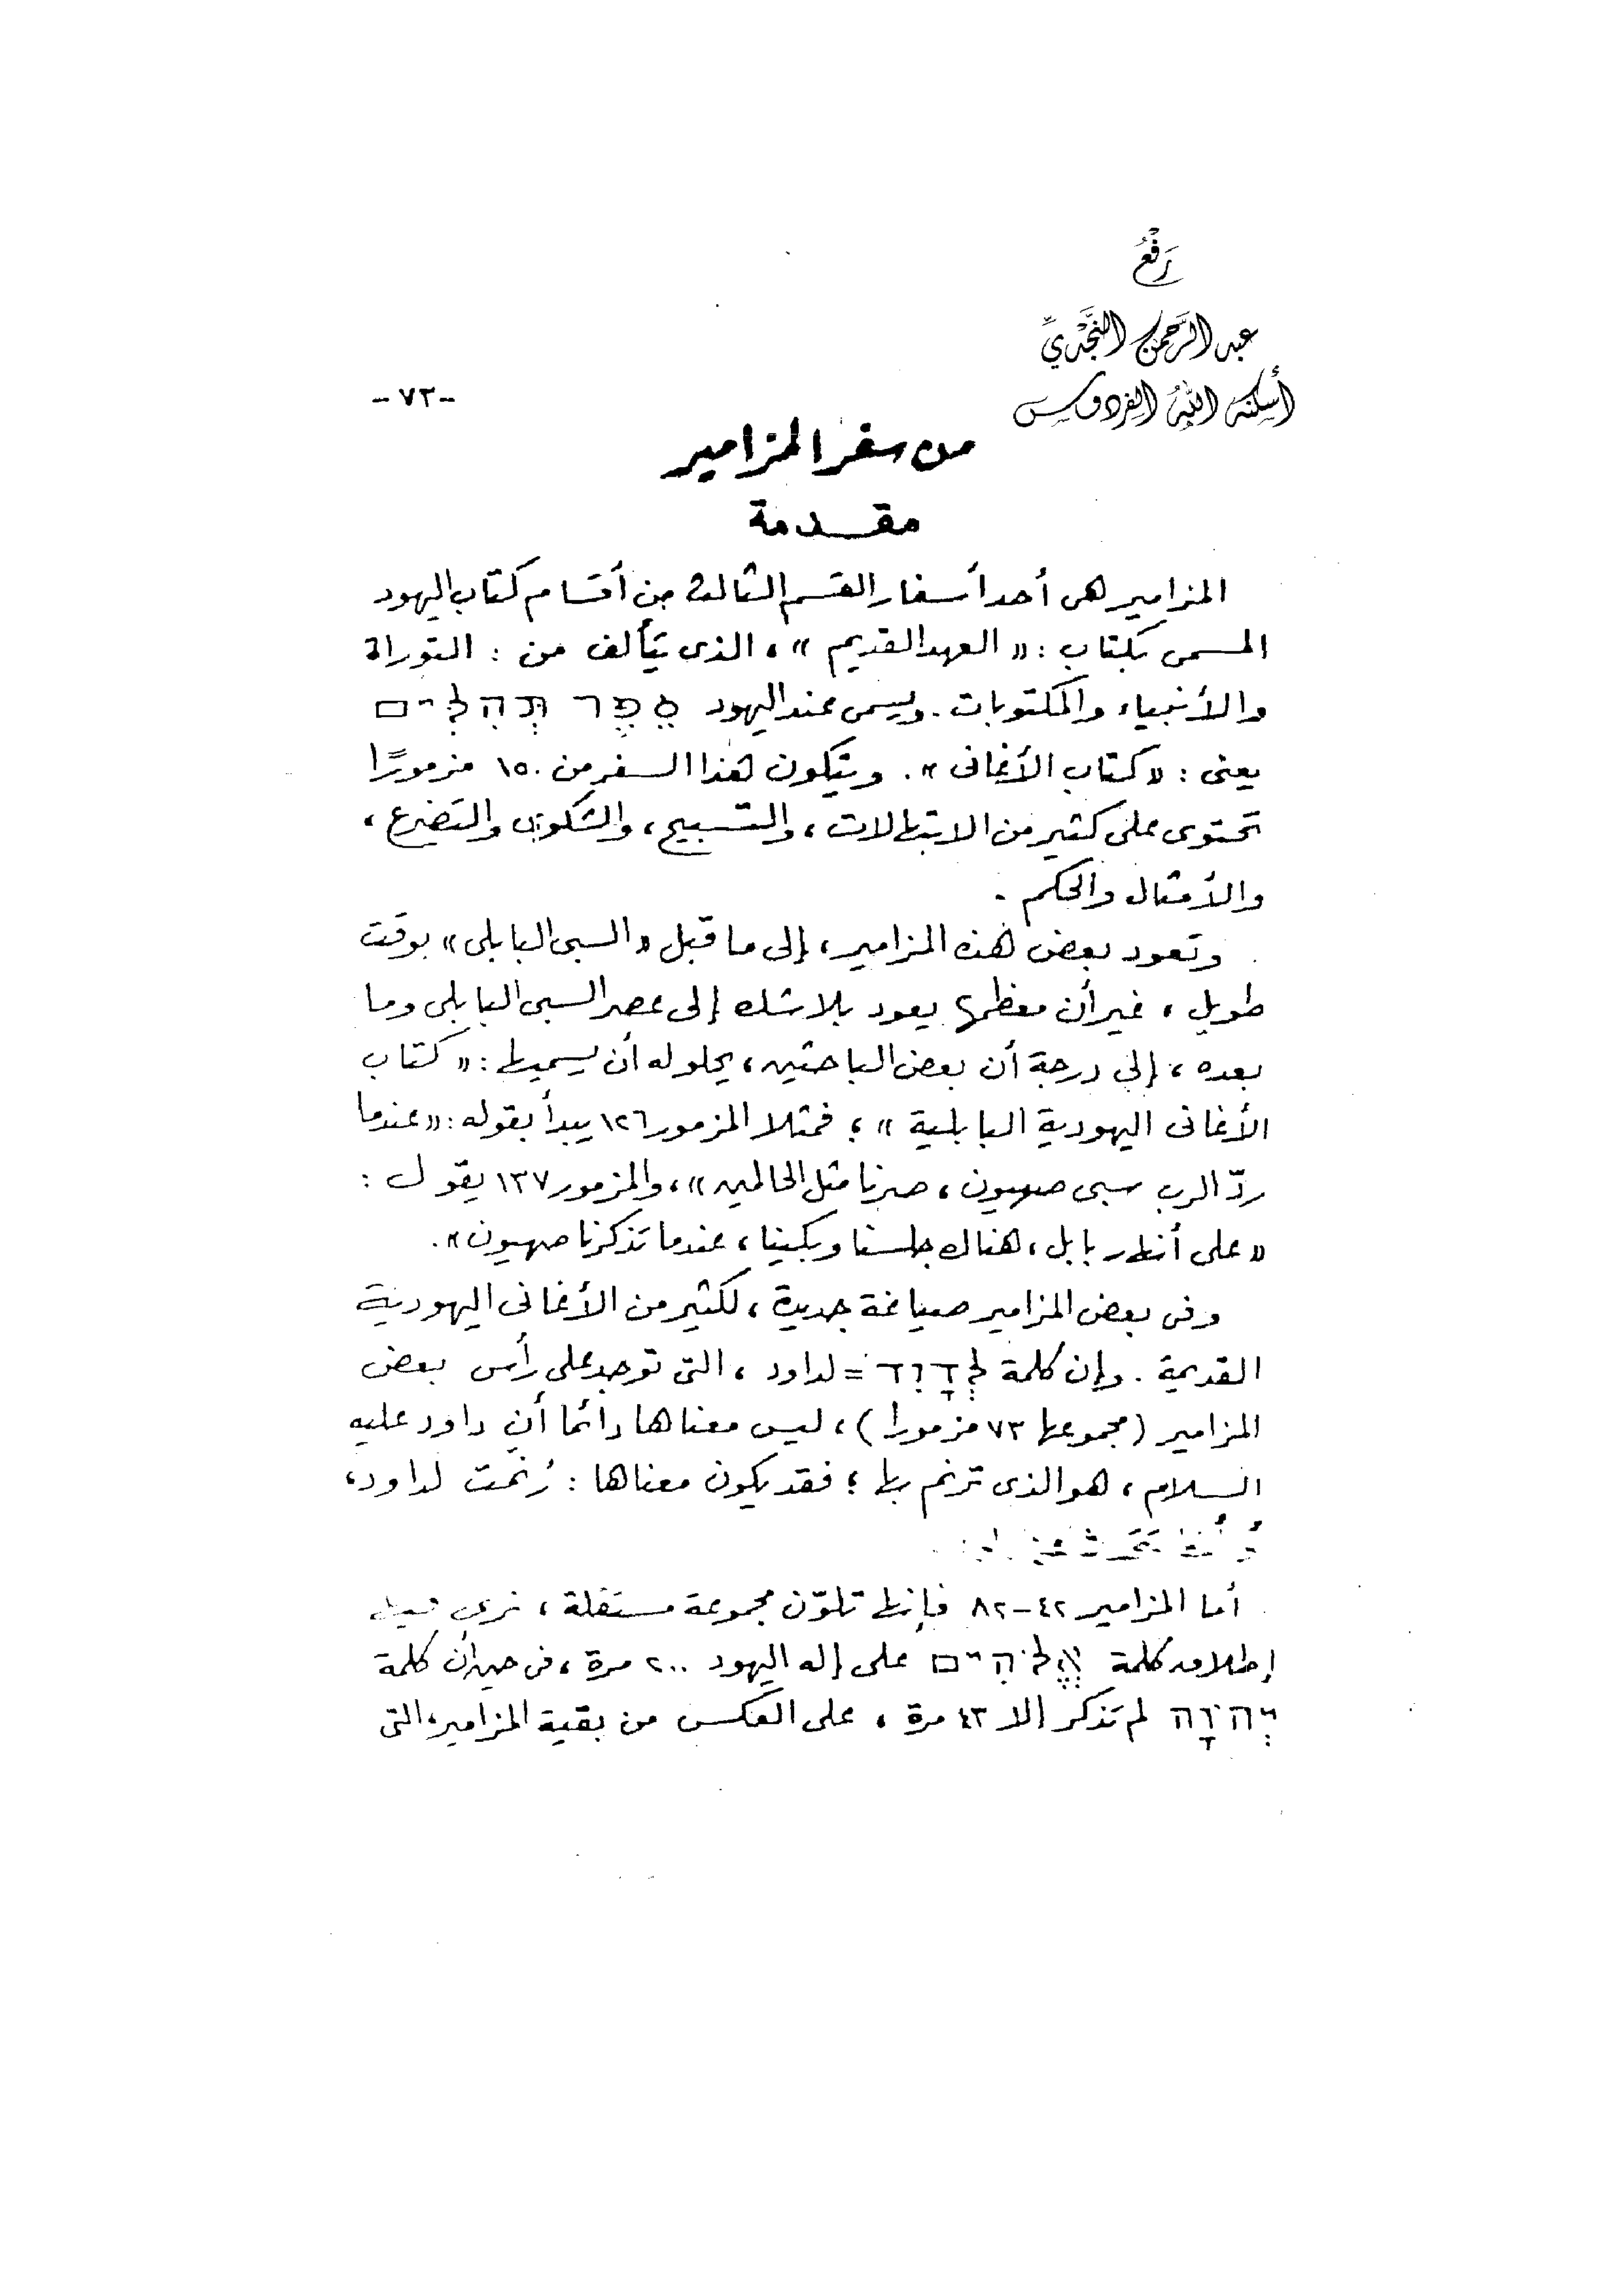 رَفْعُ
عبد الرَّحمن النَّجْديّ
أسكنه اللهُ الفردوس
-٧٣-
من سفر المزامير
مقدمة
المزامير هى أحد أسفار القسم الثالث من أقسام كتاب اليهود
المسمى بكتاب : « العهد القديم » ، الذى يتألف من : التوراة
والأنبياء والمكتوبات . ويسمى عند اليهود סֵפֶר תְּהִלִּים
يعنى : « كتاب الأغانى » . ويتكون هذا السفر من ١٥٠ مزمورًا
تحتوى على كثير من الابتهالات ، والتسبيح ، والشكوى والتضرع ،
والأمثال والحكم .
وتعود بعض هذه المزامير ، إلى ما قبل « السبى البابلى » بوقت
طويل ، غير أن معظمها يعود بلا شك إلى عصر السبى البابلى وما
بعده ، إلى درجة أن بعض الباحثين ، يحلو له أن يسميها : « كتاب
الأغانى اليهودية البابلية » ؛ فمثلا المزمور ١٢٦ يبدأ بقوله : « عندما
ردّ الرب سبى صهيون ، صرنا مثل الحالمين » ، والمزمور ١٣٧ يقول :
« على أنهار بابل ، هناك جلسنا وبكينا ، عندما تذكرنا صهيون » .
وفى بعض المزامير صياغة جديدة ، لكثير من الأغانى اليهودية
القديمة . وإن كلمة לְדָוִד = لداود ، التى توجد على رأس بعض
المزامير ( مجموعها ٧٣ مزمورا ) ، ليس معناها دائما أن داود عليه
السلام ، هو الذى ترنم بها ؛ فقد يكون معناها : رُنّمت لداود ،
أما المزامير ٤٢-٨٢ فإنها تكوّن مجموعة مستقلة ، نرى فيها
إطلاق كلمة אֱלֹהִים على إله اليهود ٢٠٠ مرة ، فى حين أن كلمة
יְהֹוָה لم تذكر إلا ٤٣ مرة ، على العكس من بقية المزامير ، التى